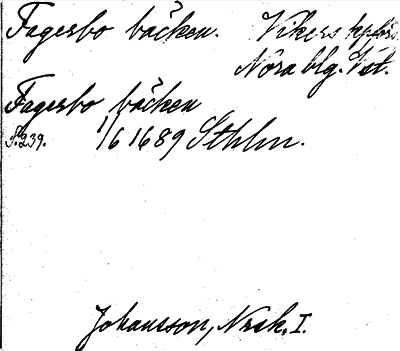 Fagerbo bäcken. Vikers kpförs.
Nora blg. Väst.
Fagerbo bäcken
S. 239. 1/6 1689 Sthlm.
Johansson, Norsk, I.